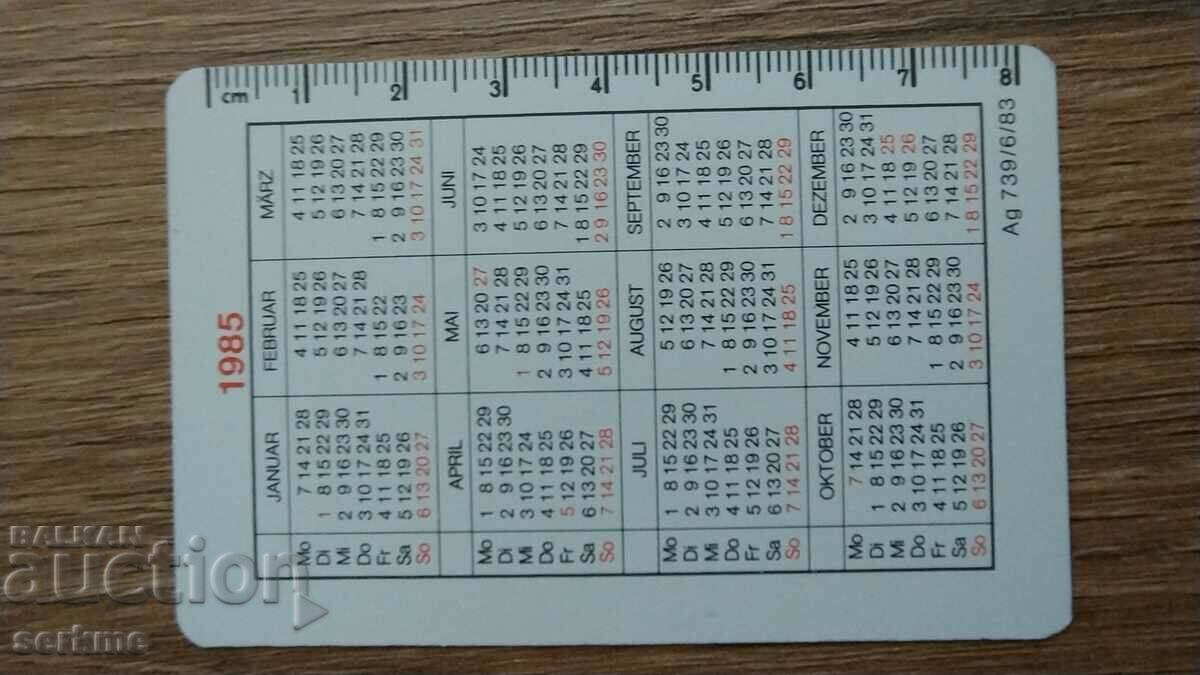 cm 1 2 3 4 5 6 7 8
1985
JANUAR FEBRUAR MÄRZ
Mo 7 14 21 28 4 11 18 25 4 11 18 25
Di 1 8 15 22 29 5 12 19 26 5 12 19 26
Mi 2 9 16 23 30 6 13 20 27 6 13 20 27
Do 3 10 17 24 31 7 14 21 28 7 14 21 28
Fr 4 11 18 25 1 8 15 22 1 8 15 22 29
Sa 5 12 19 26 2 9 16 23 2 9 16 23 30
So 6 13 20 27 3 10 17 24 3 10 17 24 31
APRIL MAI JUNI
Mo 1 8 15 22 29 6 13 20 27 3 10 17 24
Di 2 9 16 23 30 7 14 21 28 4 11 18 25
Mi 3 10 17 24 1 8 15 22 29 5 12 19 26
Do 4 11 18 25 2 9 16 23 30 6 13 20 27
Fr 5 12 19 26 3 10 17 24 31 7 14 21 28
Sa 6 13 20 27 4 11 18 25 1 8 15 22 29
So 7 14 21 28 5 12 19 26 2 9 16 23 30
JULI AUGUST SEPTEMBER
Mo 1 8 15 22 29 5 12 19 26 2 9 16 23 30
Di 2 9 16 23 30 6 13 20 27 3 10 17 24
Mi 3 10 17 24 31 7 14 21 28 4 11 18 25
Do 4 11 18 25 1 8 15 22 29 5 12 19 26
Fr 5 12 19 26 2 9 16 23 30 6 13 20 27
Sa 6 13 20 27 3 10 17 24 31 7 14 21 28
So 7 14 21 28 4 11 18 25 1 8 15 22 29
OKTOBER NOVEMBER DEZEMBER
Mo 7 14 21 28 4 11 18 25 2 9 16 23 30
Di 1 8 15 22 29 5 12 19 26 3 10 17 24 31
Mi 2 9 16 23 30 6 13 20 27 4 11 18 25
Do 3 10 17 24 31 7 14 21 28 5 12 19 26
Fr 4 11 18 25 1 8 15 22 29 6 13 20 27
Sa 5 12 19 26 2 9 16 23 30 7 14 21 28
So 6 13 20 27 3 10 17 24 1 8 15 22 29
Ag 739/6/83
BALKAN
auction
serkme